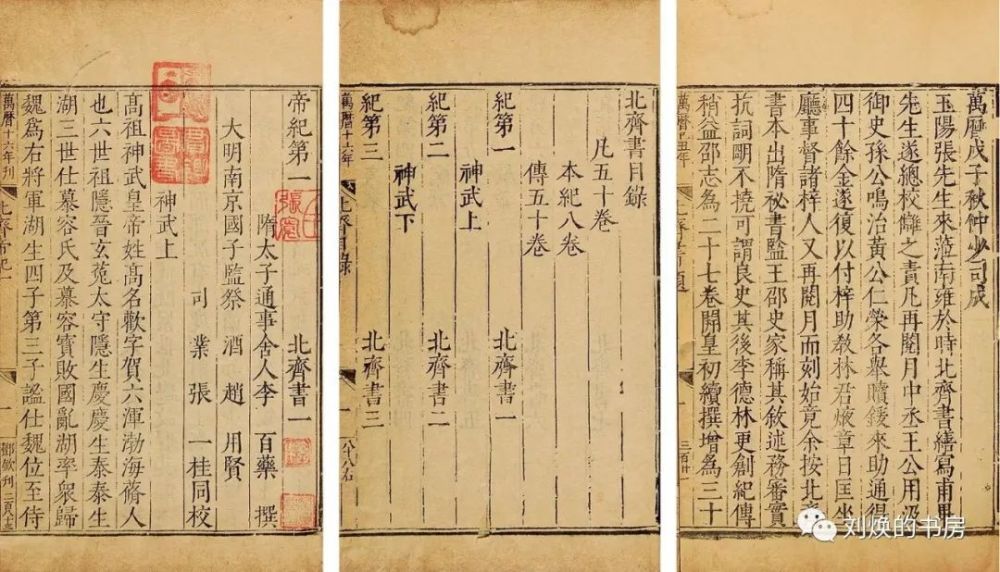 萬曆戊子秋仲少司成
玉陽張先生來蒞南雍於時北齊書繕寫甫畢
先生遂總校讎之責凡再閱月中丞王公用汲
御史孫公鳴治黃公仁榮各舉贖鍰來助通得
四十餘金遂復以付梓助教林君焌章日匡坐
廳事督諸梓人又再閱月而刻始竟余按北齊
書本出隋祕書監王邵史家稱其敘述務審實
抗詞明不撓可謂良史其後李德林更創紀傳
稍益邵志為二十七卷開皇初續撰增為三十
萬曆己丑年
北齊書目錄
凡五十卷
本紀八卷
傳五十卷
紀第一 北齊書一
神武上
紀第二 北齊書二
神武下
紀第三 北齊書三
萬曆十六年 北齊目錄 一
帝紀第一 北齊書一
隋太子通事舍人李 百藥 撰
大明南京國子監祭 酒 趙 用賢
司 業 張 一桂同校
神武上
高祖神武皇帝姓高名歡字賀六渾渤海蓨人
也六世祖隱晉玄菟太守隱生慶慶生泰泰生
湖三世仕慕容氏及慕容寶敗國亂湖率衆歸
魏爲右將軍湖生四子第三子謐仕魏位至侍
萬曆十六年刊 北齊帝紀一 一
刘焕的书房